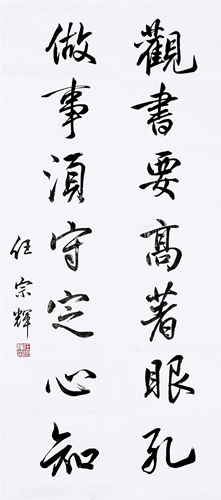 觀書要高著眼孔
做事須守定心知
任宗輝